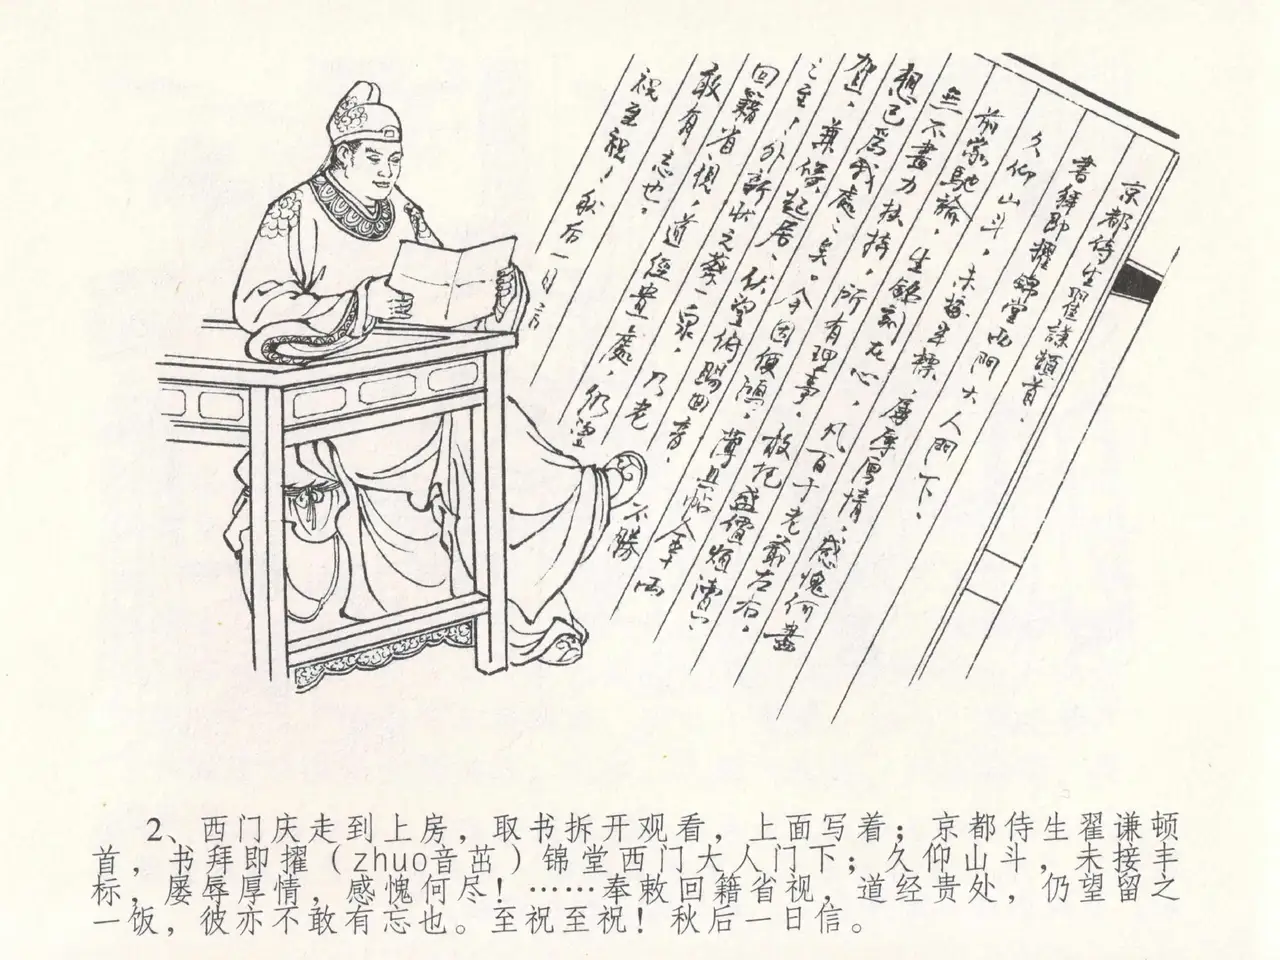 京都侍生翟謙頓首。
書拜即擢錦堂西門大人門下。
久仰山斗,未接丰標,屢辱厚情,感愧何盡
前蒙馳諭,生銘刻在心,凡百于老爺左右。
無不盡力扶持,所有理事,敢托盛價煩瀆
想已為我處之矣。今因便鴻,薄具帖金十兩
賀,兼候起居、伏望俯賜回音。不勝
之至!外新狀元蔡一泉,乃老
回籍省視,道經貴處,仍望
敢有忘也。
祝至祝!秋后一日言
2、西门庆走到上房,取书拆开观看,上面写着;京都侍生翟谦顿
首,书拜即擢(zhuo音茁)锦堂西门大人门下;久仰山斗,未接丰
标,屡辱厚情,感愧何尽!……奉敕回籍省视,道经贵处,仍望留之
一饭,彼亦不敢有忘也。至祝至祝!秋后一日信。